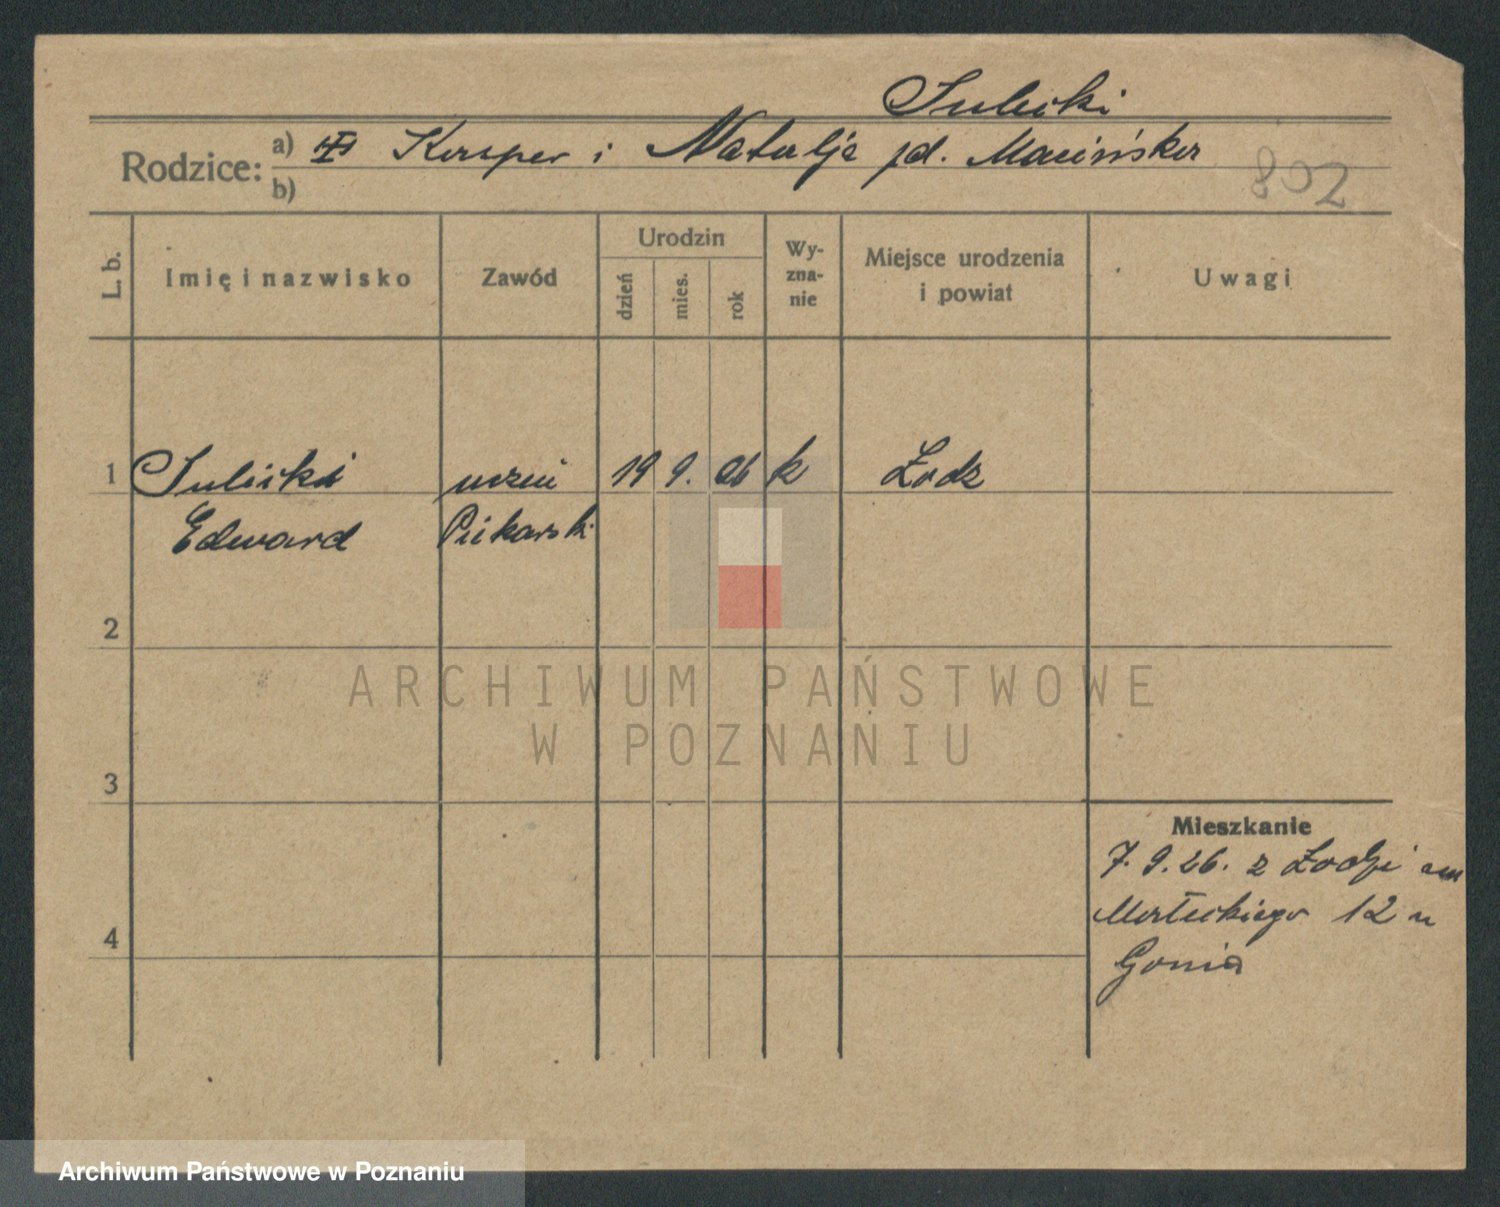 Sulicki
Rodzice: a) Kasper i Natalja pd. Macińska
b)
802
L. b.
Imię i nazwisko
Zawód
Urodzin
dzień
mies.
rok
Wy-
zna-
nie
Miejsce urodzenia
i powiat
Uwagi
1 Sulicki uczeń 19 9. k Łodz
Edward Piekarski
2
ARCHIWUM PAŃSTWOWE
W POZNANIU
3
Mieszkanie
7.9.26. z Łodzi
12 u
4
Gonia
Archiwum Państwowe w Poznaniu